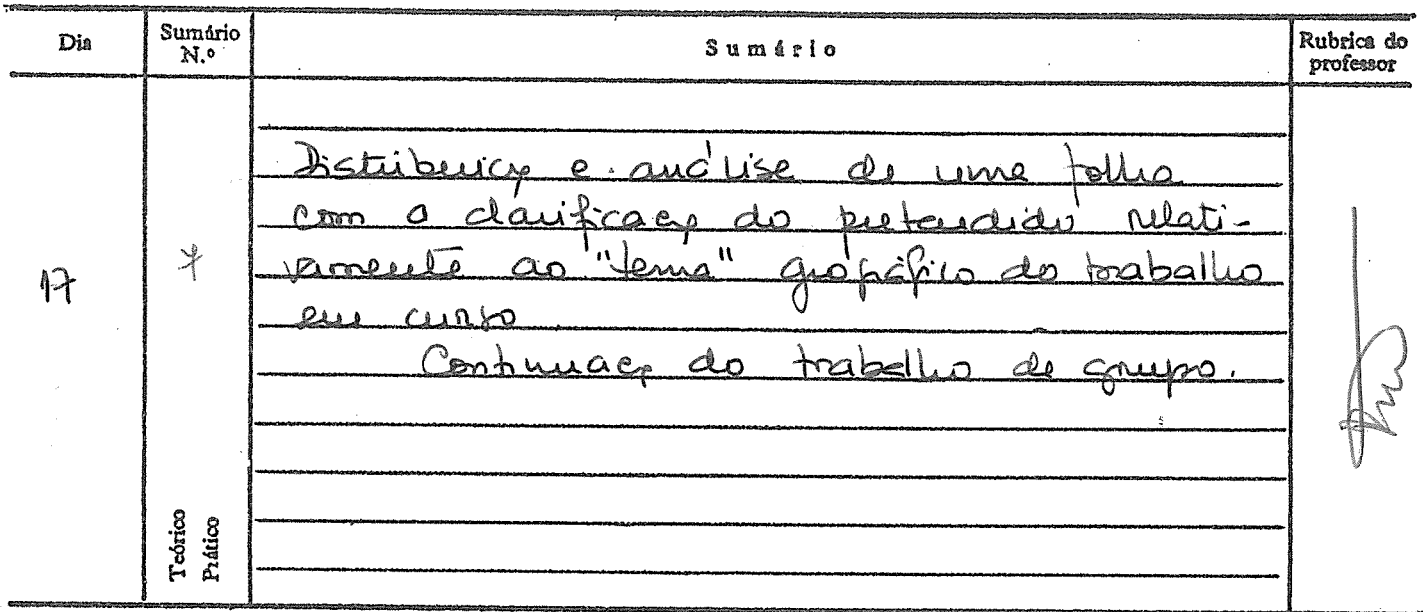 Dia
Sumário N.º
Sumário
Rubrica do professor
Distribuição e análise de uma folha
com a clarificação do pretendido relati-
17 * vamente ao "tema" geográfico do trabalho
em curso.
Continuação do trabalho de grupo.
Teórico
Prático